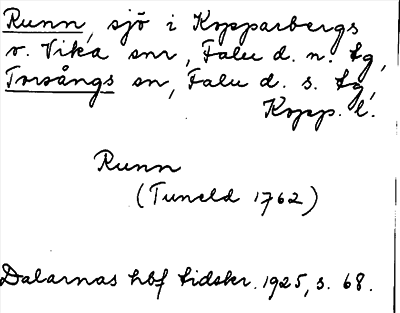 Runn, sjö i Kopparbergs
o. Vika snr, Falu d. n. tg,
Torsångs sn, Falu d. s. tg,
Kopp. l.
Runn
(Tuneld 1762)
Dalarnas hbf tidskr. 1925, s. 68.